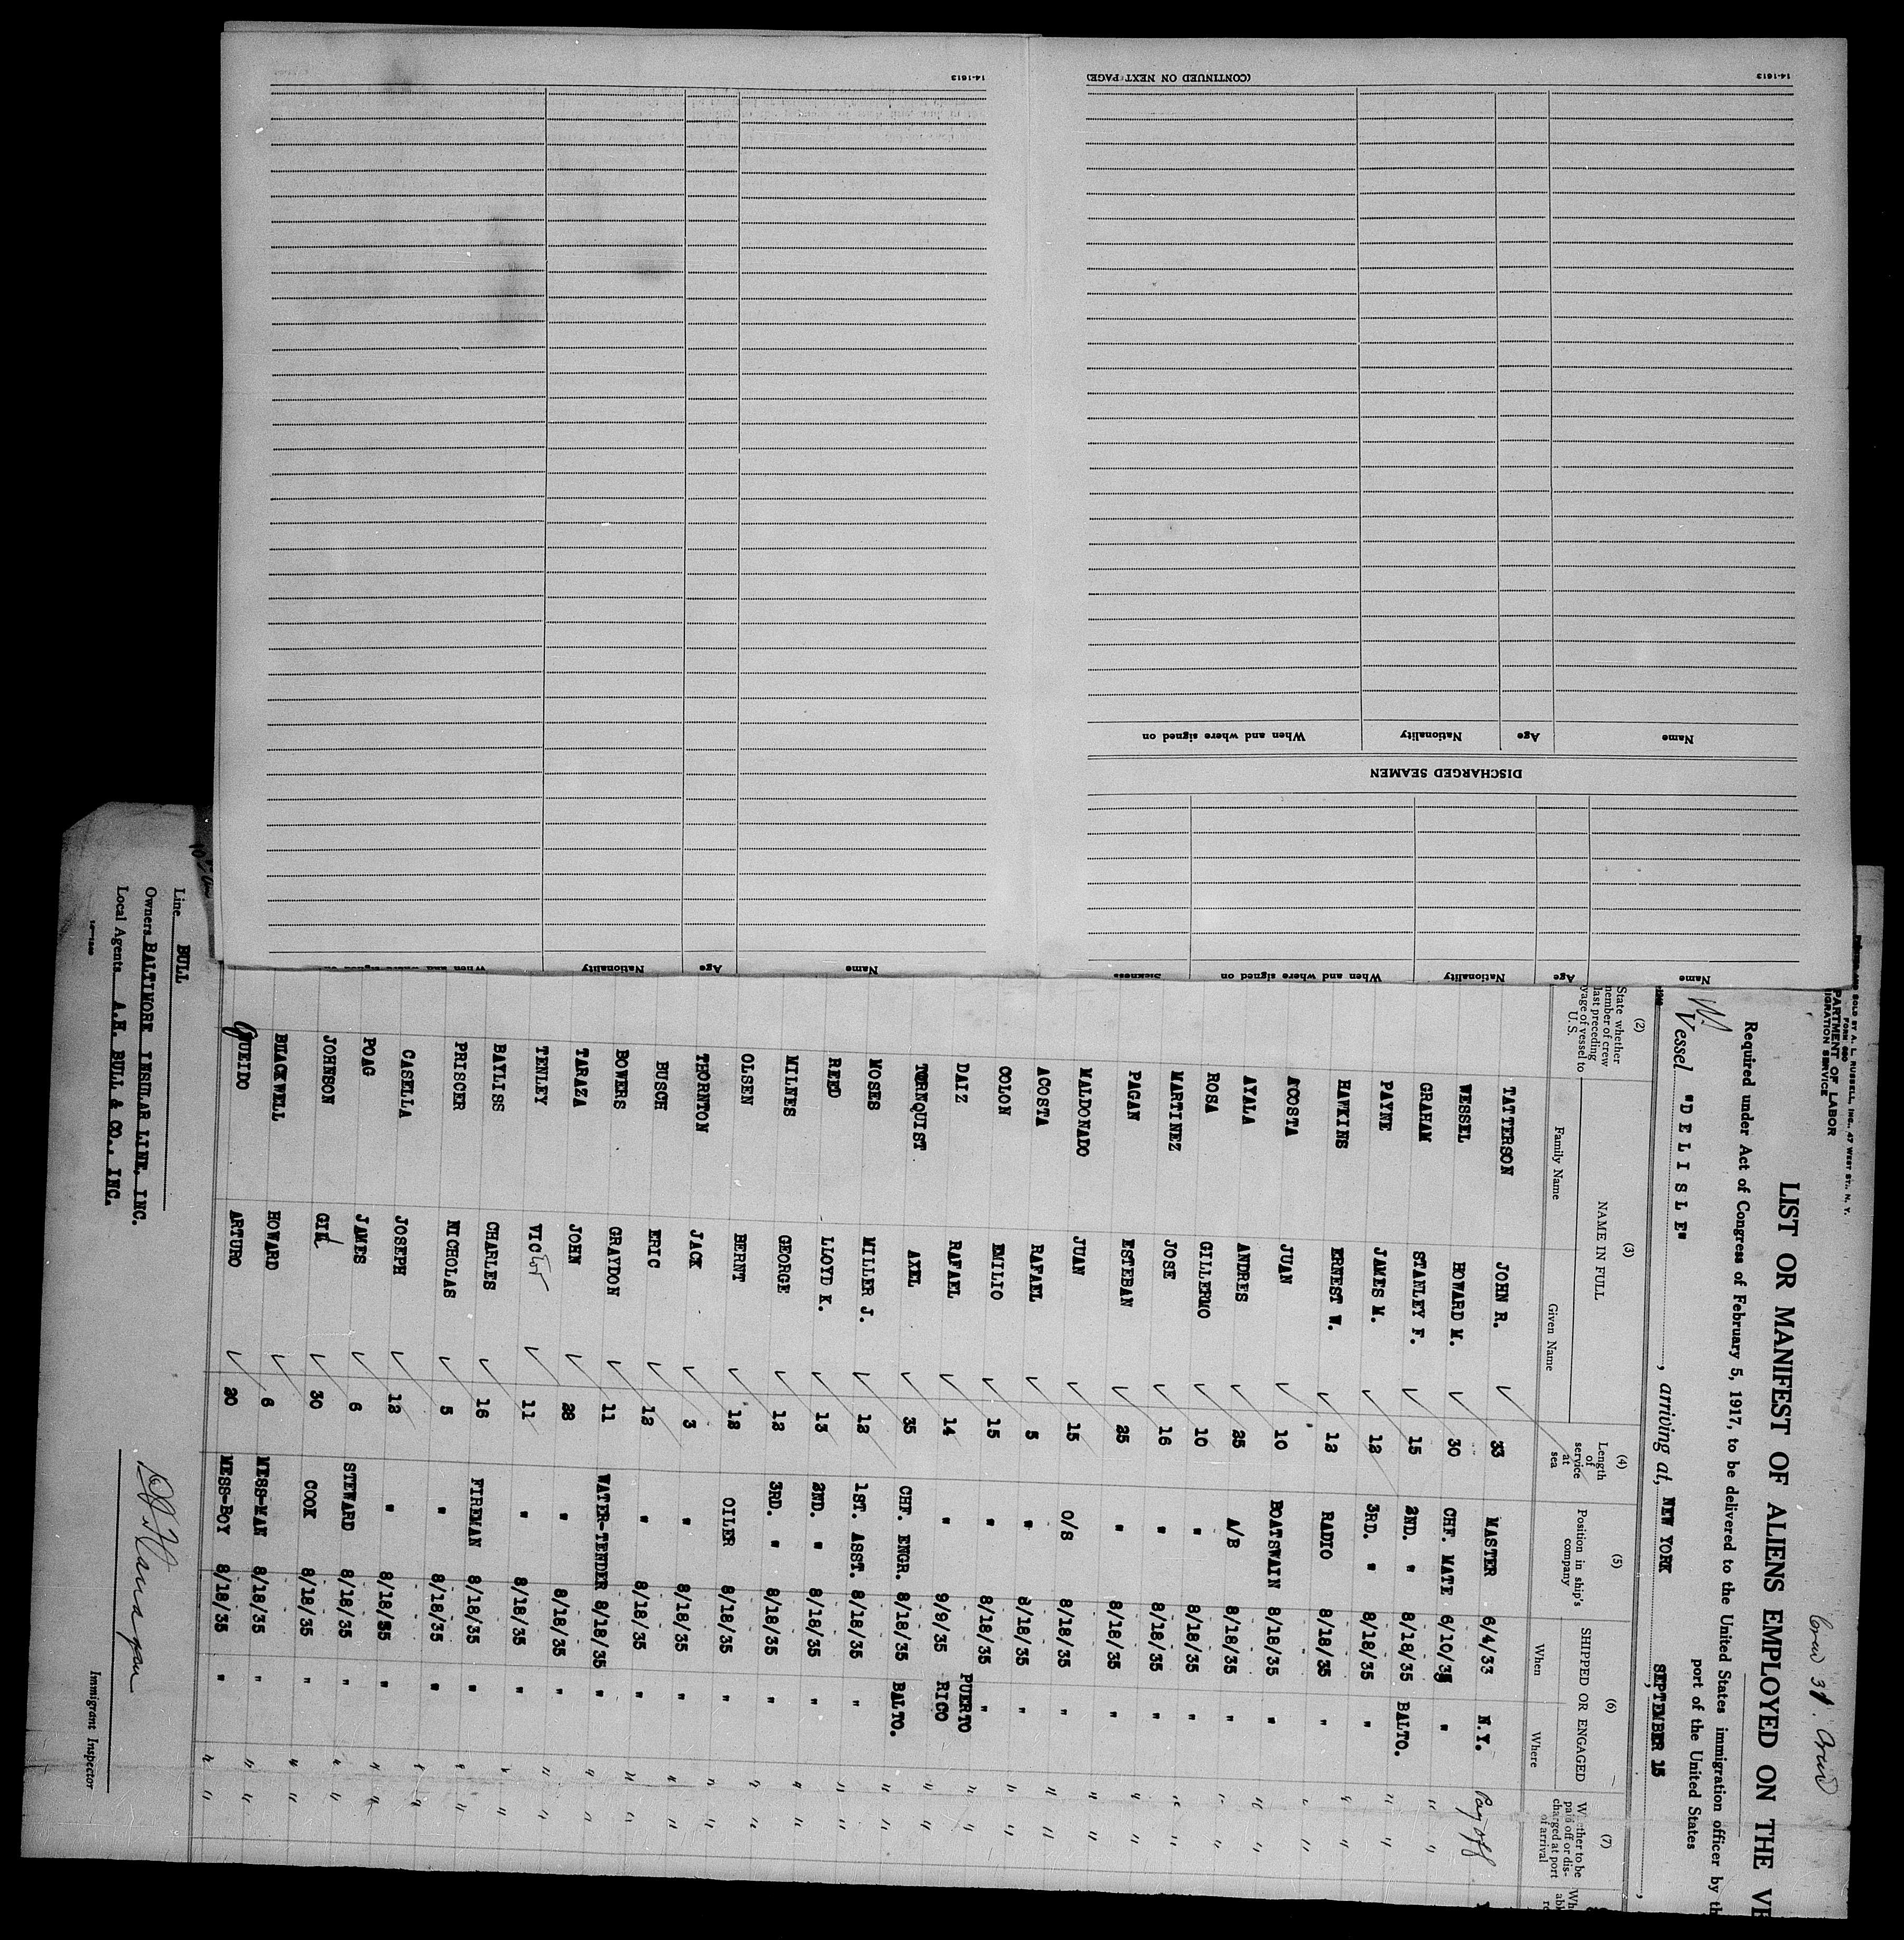 14-1613
(CONTINUED ON NEXT PAGE)
14-1613
Name
Age
Nationality
When and where signed on
DISCHARGED SEAMEN
Name
Age
Nationality
When and where signed on
Sickness
Name
Age
Nationality
When and where signed on
SOLD BY A. L. RUSSELL, INC., 47 WEST ST., N. Y.
FORM 680
PARTMENT OF LABOR
IGRATION SERVICE
Crew 31.
LIST OR MANIFEST OF ALIENS EMPLOYED ON THE VE
Required under Act of Congress of February 5, 1917, to be delivered to the United States immigration officer by th
port of the United States
Vessel "D E L I S L E", arriving at, NEW YORK, SEPTEMBER 15,
(2) (3) (4) (5) (6) (7)
State whether member of crew last preceding voyage of vessel to U.S.
NAME IN FULL
Family Name Given Name
Length of service at sea
Position in ship's company
SHIPPED OR ENGAGED
When Where
Whether to be paid off or discharged at port of arrival
TATTERSON JOHN R. 33 MASTER 6/4/33 N.Y. Pay off
WESSEL HOWARD M. 30 CHF. MATE 6/10/35 " " "
GRAHAM STANLEY F. 15 2ND. " 8/18/35 BALTO. " "
PAYNE JAMES M. 12 3RD. " 8/18/35 " " "
HAWKINS ERNEST W. 12 RADIO 8/18/35 " " "
ACOSTA JUAN 10 BOATSWAIN 8/18/35 " " "
AYALA ANDRES 25 A/B 8/18/35 " " "
ROSA GILLERMO 10 " 8/18/35 " " "
MARTINEZ JOSE 16 " 8/18/35 " " "
PAGAN ESTEBAN 25 " 8/18/35 " " "
MALDONADO JUAN 15 O/S 8/18/35 " " "
ACOSTA RAFAEL 5 " 8/18/35 " " "
COLON EMILIO 15 " 8/18/35 " " "
DAIZ RAFAEL 14 " 9/9/35 PUERTO RICO " "
TORNQUIST AXEL 35 CHF. ENGR. 8/18/35 BALTO. " "
MOSES MILLER J. 12 1ST. ASST. 8/18/35 " " "
REED LLOYD K. 13 2ND. " 8/18/35 " " "
MILNES GEORGE 12 3RD. " 8/18/35 " " "
OLSEN BERNT 12 OILER 8/18/35 " " "
THORNTON JACK 3 " 8/18/35 " " "
BUSCH ERIC 12 " 8/18/35 " " "
BOWERS GRAYDON 11 WATER-TENDER 8/18/35 " " "
TARAZA JOHN 28 " 8/18/35 " " "
TENLEY VICtor 11 " 8/18/35 " " "
BAYLISS CHARLES 16 FIREMAN 8/18/35 " " "
PRISCER NICHOLAS 5 " 8/18/35 " " "
CASELLA JOSEPH 12 " 8/18/35 " " "
POAG JAMES 6 STEWARD 8/18/35 " " "
JOHNSON GIL 30 COOK 8/18/35 " " "
BLACKWELL HOWARD 6 MESS-MAN 8/18/35 " " "
GUEIDO ARTURO 20 MESS-BOY 8/18/35 " " "
Line BULL
Owners BALTIMORE INSULAR LINE, INC.
Local Agents A.H. BULL & CO., INC.
Immigrant Inspector